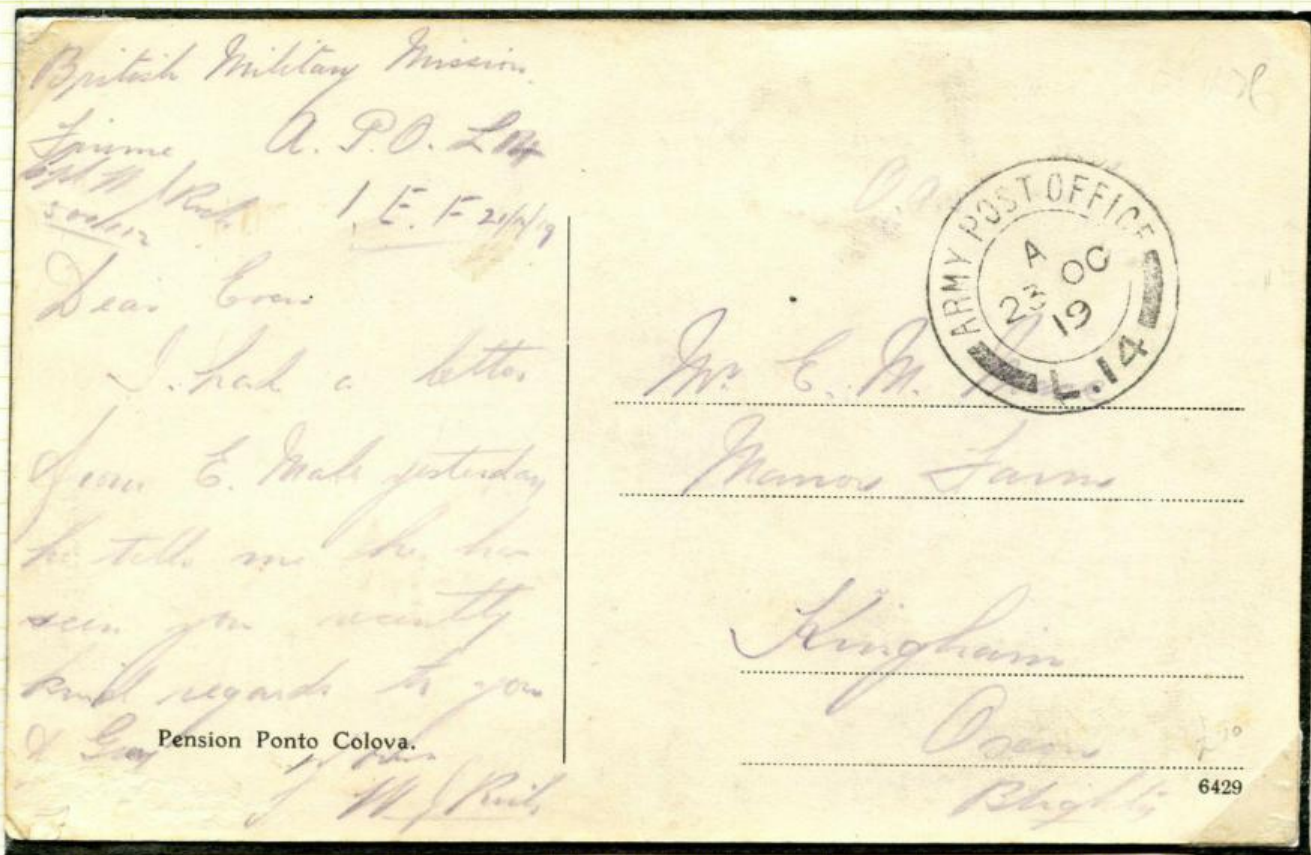 British Military Mission
Fiume A. P. O. L14
Cpl W J Rich I. E. F 21/10/19
500112
Dear
I had a letter
from E. Male yesterday
he tells me he has
seen you recently
kind regards to you
&
W J Rich
Pension Ponto Colova.
ARMY POST OFFICE
A
23 OC
19
L.14
Mr. E. M.
Manor Farm
Kingham
Oxon
Blighty
6429